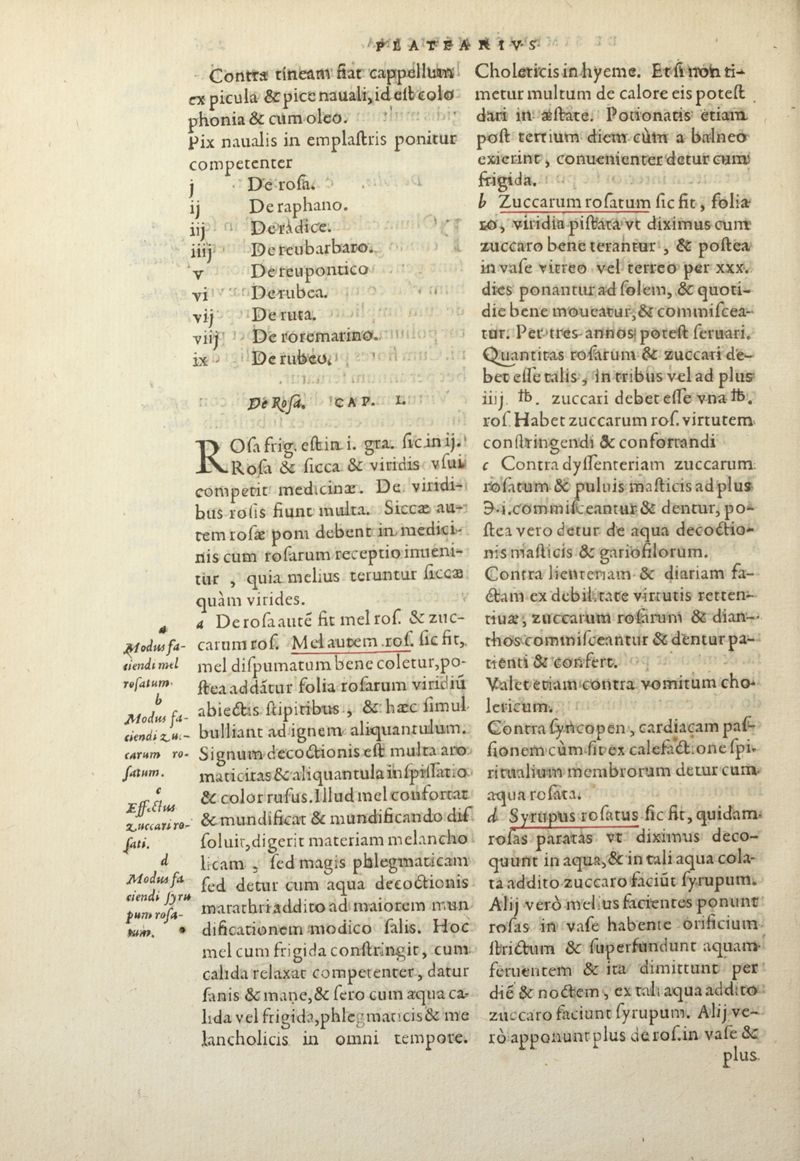 PLATEARIVS
Contra tineam fiat cappellum
ex picula & pice nauali, id est colo
phonia & cum oleo.
Pix naualis in emplastris ponitur
competenter
j De rosa.
ij De raphano.
iij De radice.
iiij De reubarbaro.
v De reupontico
vi De rubea.
vij De ruta.
viij De roremarino.
ix De rubeo.
De Rosa. CAP. I.
ROsa frig. est in i. gra. sic. in ij.
Rosa & sicca & viridis vsui
competit medicinæ. De viridi-
bus rosis fiunt multa. Siccæ au-
tem rosæ poni debent in medici-
nis cum rosarum receptio inueni-
tur , quia melius teruntur siccæ
quàm virides.
a De rosa autē fit mel ros. & zuc-
carum ros. Mel autem ros. sic fit,
mel dispumatum bene coletur, po-
stea addātur folia rosarum viridiū
abiectis stipitibus , & hæc simul
bulliant ad ignem aliquantulum.
Signum decoctionis est multa aro
maticitas & aliquantula inspissatio
& color rufus. Illud mel confortat
& mundificat & mundificando dis
soluit, digerit materiam melancho
licam , sed magis phlegmaticam
sed detur cum aqua decoctionis
marathri addito ad maiorem mun
dificationem modico salis. Hoc
mel cum frigida constringit, cum
calida relaxat competenter, datur
sanis & mane, & sero cum aqua ca-
lida vel frigida, phlegmaticis & me
lancholicis in omni tempore.
a
Modus fa-
ciendi mel
rosatum.
b
Modus fa-
ciendi zu-
carum ro-
satum.
c
Effectus
zuccari ro-
sati.
d
Modus fa
ciendi syru
pum rosa-
tum.
Cholericis in hyeme. Et si non ti-
metur multum de calore eis potest
dari in æstate. Potionatis etiam
post tertium diem cùm a balneo
exierint, conuenienter detur cum
frigida.
b Zuccarum rosatum sic fit, folia
ro, viridia pistata vt diximus cum
zuccaro bene terantur , & postea
in vase vitreo vel terreo per xxx.
dies ponantur ad solem, & quoti-
die bene moueatur, & commiscea-
tur. Per tres annos potest seruari.
Quantitas rosarum & zuccari de-
bet esse talis, in tribus vel ad plus
iiij ℔. zuccari debet esse vna ℔.
ros. Habet zuccarum ros. virtutem
constringendi & confortandi
c Contra dyssenteriam zuccarum
rosatum & puluis masticis ad plus
℈. i. commisceantur & dentur, po-
stea vero detur de aqua decoctio-
nis masticis & gariofilorum.
Contra lienteriam & diariam fa-
ctam ex debilitate virtutis retten-
tiuæ, zuccarum rosarum & dian-
thos commisceantur & dentur pa-
tienti & confert.
Valet etiam contra vomitum cho-
lericum.
Contra syncopen, cardiacam pas-
sionem cùm fit ex calefactione spi-
ritualium membrorum detur cum
aqua rosata.
d Syrupus rosatus sic fit, quidam
rosas paratas vt diximus deco-
quunt in aqua, & in tali aqua cola-
ta addito zuccaro faciūt syrupum.
Alij verò melius facientes ponunt
rosas in vase habente orificium
strictum & superfundunt aquam
feruentem & ita dimittunt per
diē & noctem, ex tali aqua addito
zuccaro faciunt syrupum. Alij ve-
rò apponunt plus de ros. in vase &
plus